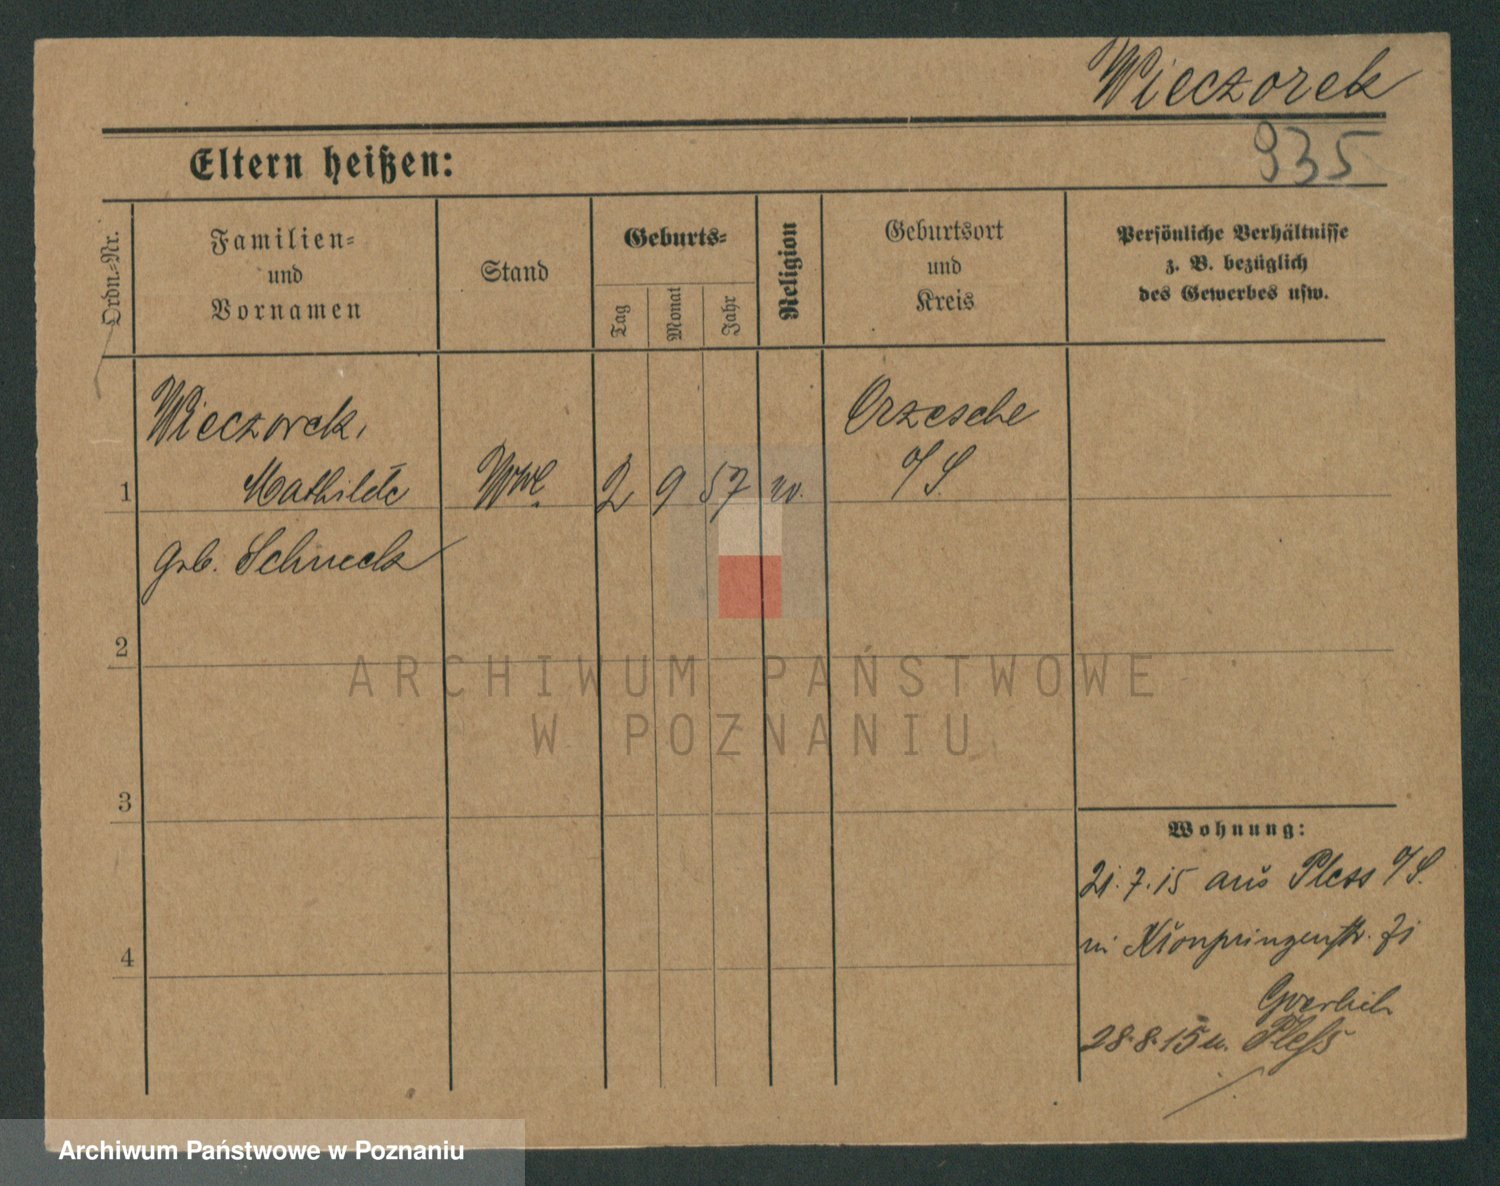 Wieczorek
935
Eltern heißen:
Ordn.-Nr.
Familien-
und
Vornamen
Stand
Geburts-
Tag
Monat
Jahr
Religion
Geburtsort
und
Kreis
Persönliche Verhältnisse
z. B. bezüglich
des Gewerbes usw.
Wieczorek,
Orzesche
1 Mathilde Wwe 2 9 57 O/S.
geb. Schneck
2
ARCHIWUM PAŃSTWOWE
W POZNANIU
3
4
Wohnung:
21.7.15 aus Pless O/S.
Kronprinzenstr.
28.8.15 n. Pleß
Archiwum Państwowe w Poznaniu